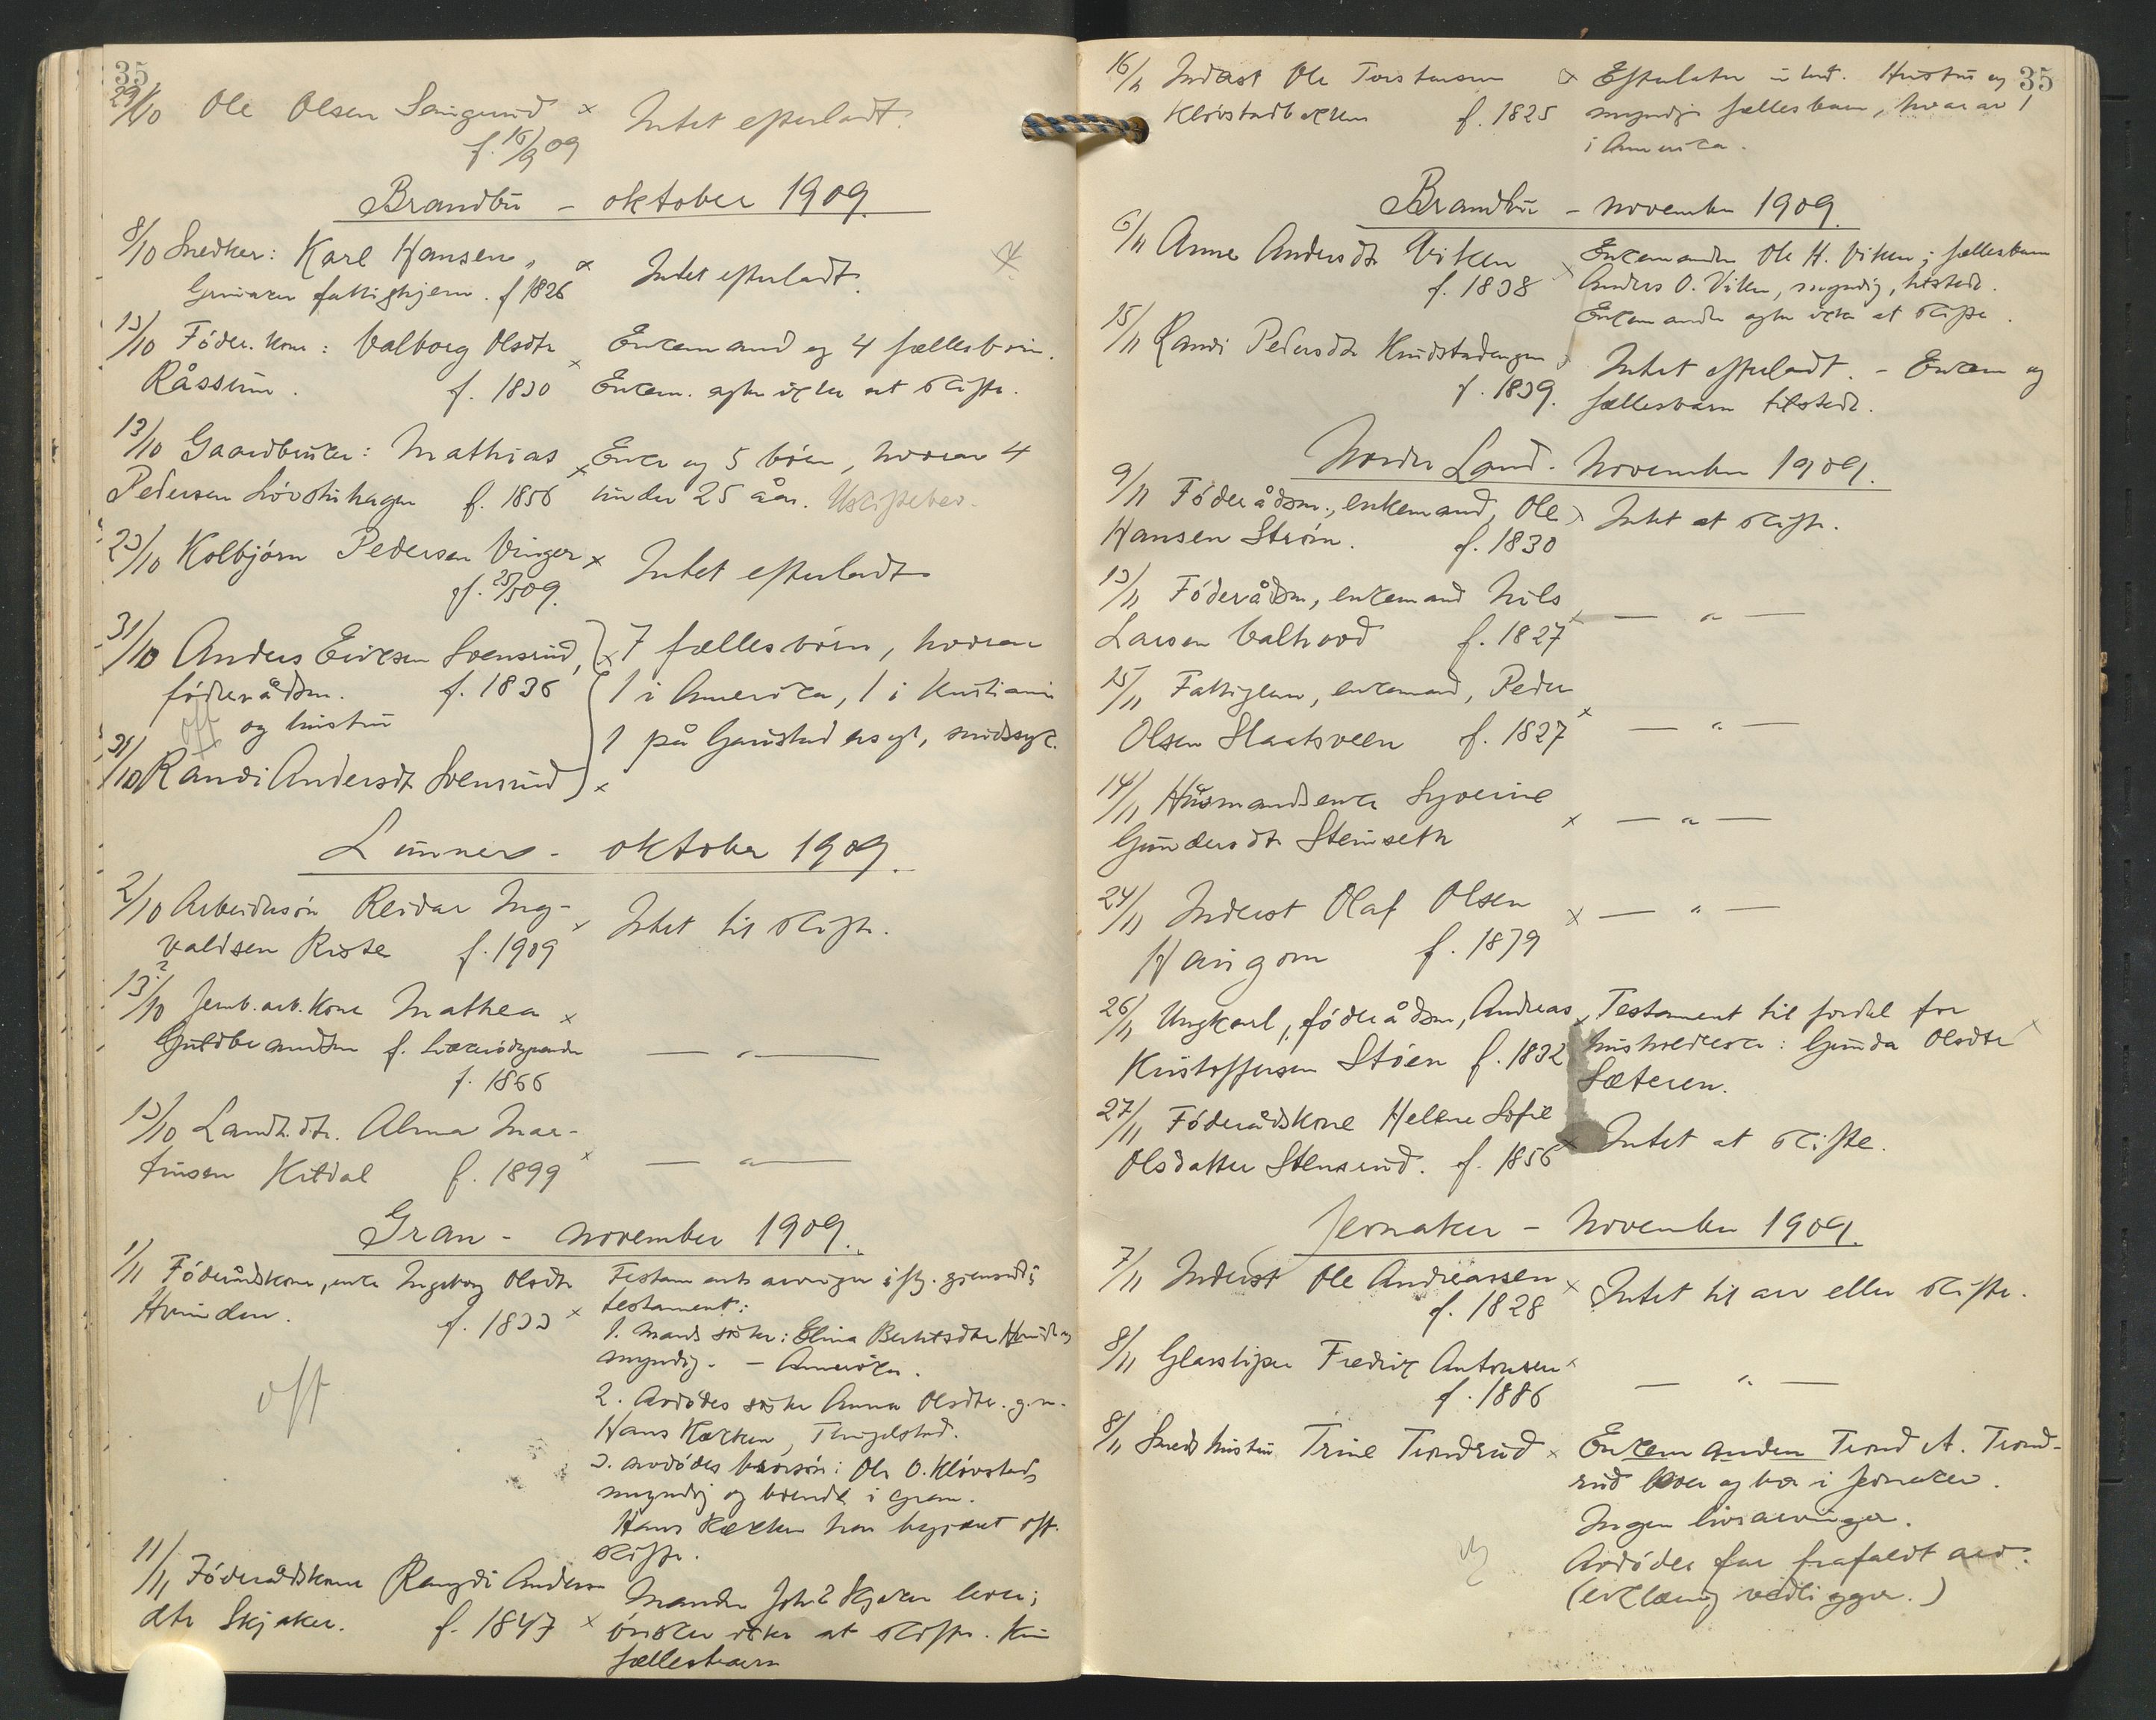 35
29/10 Ole Olsen × Intet efterladt.
f. 16/9 09
Brandbu - oktober 1909.
8/10 Snedker: Karl Hansen, × Intet efterladt.
fattighjem. f 1826
13/10 Föder. kone: Valborg Olsdtr × Enkemand og 4 fællesbörn.
Råssum. f. 1830 Enkem. agter ikke at skifte.
13/10 Gaardbruker: Mathias Enke og 5 börn, hvorav 4
Pedersen Lövstuhagen f. 1856 × under 25 år. Uskiftebev.
23/10 Kolbjörn Pedersen Vinger × Intet efterladt
f. 09.
31/10 Anders Eriksen Svensrud, × 7 fællesbörn, hvorav
föderådsm. f. 1836 1 i Amerika, 1 i Kristiania
off og hustru 1 på Gaustad asyl, sindssyk.
31/10 Randi Andersdt. Svensrud ×
Lunner - oktober 1909.
2/10 Arbeidersön Reidar Ing- × Intet til skifte.
valdsen Roste f. 1909
13?/10 Jernb.arb. kone Mathea ×
Guldbrandsen f. — " —
f. 1866
13/10 Landh.dtr. Alma Mar-
tinsen Kitdal f. 1899 × — " —
Gran - november 1909.
1/11 Föderådskone, enke Ingeborg Olsdtr Testaments arvinger iflg. gjensidig
Hvinden. f. 1833 × testament:
1. Mands söster: Elina Hvinden
myndig. - Amerika.
off 2. Avdödes söster Anna Olsdtr. g.m.
Hans Kækken, Tingelstad.
3. avdödes brorsön: Ole O. Klövstad,
myndig og boende i Gran.
Hans Kækken har begjæret off.
skifte.
11/11 Föderådskone Rangdi Anders- Manden Joh. Skjaker lever;
dtr Skjaker. f. 1847 × önsker ikke at skifte. Kun
fællesbarn
35
16/11 Inderst Ole Torstensen × Efterlater Hustru og
Klövstadbakken f. 1825 myndige fællesbarn, hvorav 1
i Amerika.
Brandbu - november 1909.
6/11 Anne Andersdtr Viken × Enkemanden Ole H. Viken; fællesbarn
f. 1838 Anders O. Viken, myndig, tilstede.
Enkemanden agter ikke at skifte.
15/11 Randi Pedersdtr Knudstadengen × Intet efterladt. - Enkem og
f. 1839. fællesbarn tilstede.
Nordre Land - November 1909.
9/11 Föderådsm., enkemand, Ole × Intet at skifte.
Hansen Ström. f. 1830
13/11 Föderådsm, enkemand Nils × — " —
Larsen Valhovd f. 1827
15/11 Fattiglem, enkemand, Peder × — " —
Olsen Slaatsveen f. 1827
14/11 Husmandsenke Syverine × — " —
Gundersdtr Steinseth
24/11 Inderst Olaf Olsen × — " —
Haugom f. 1879
26/11 Ungkarl, föderådsm, Andreas × Testament til fordel for
Kristoffersen Stöen f. 1832 husholderske: Gunda Olsdtr
Sæteren.
27/11 Föderådskone Helene Sofie × Intet at skifte.
Olsdatter Stensrud. f. 1856
Jevnaker - November 1909.
7/11 Inderst Ole Andreassen × Intet til arv eller skifte.
f. 1828
8/11 Glassliper Fredrik Antonsen × — " —
f. 1886
8/11 Smeds hustru Trine Trondrud × Enkemanden Trond A. Trond-
rud lever og bor i Jevnaker.
Ingen livsarvinger.
Avdödes far frafaldt arv.
(erklæring vedligger.)